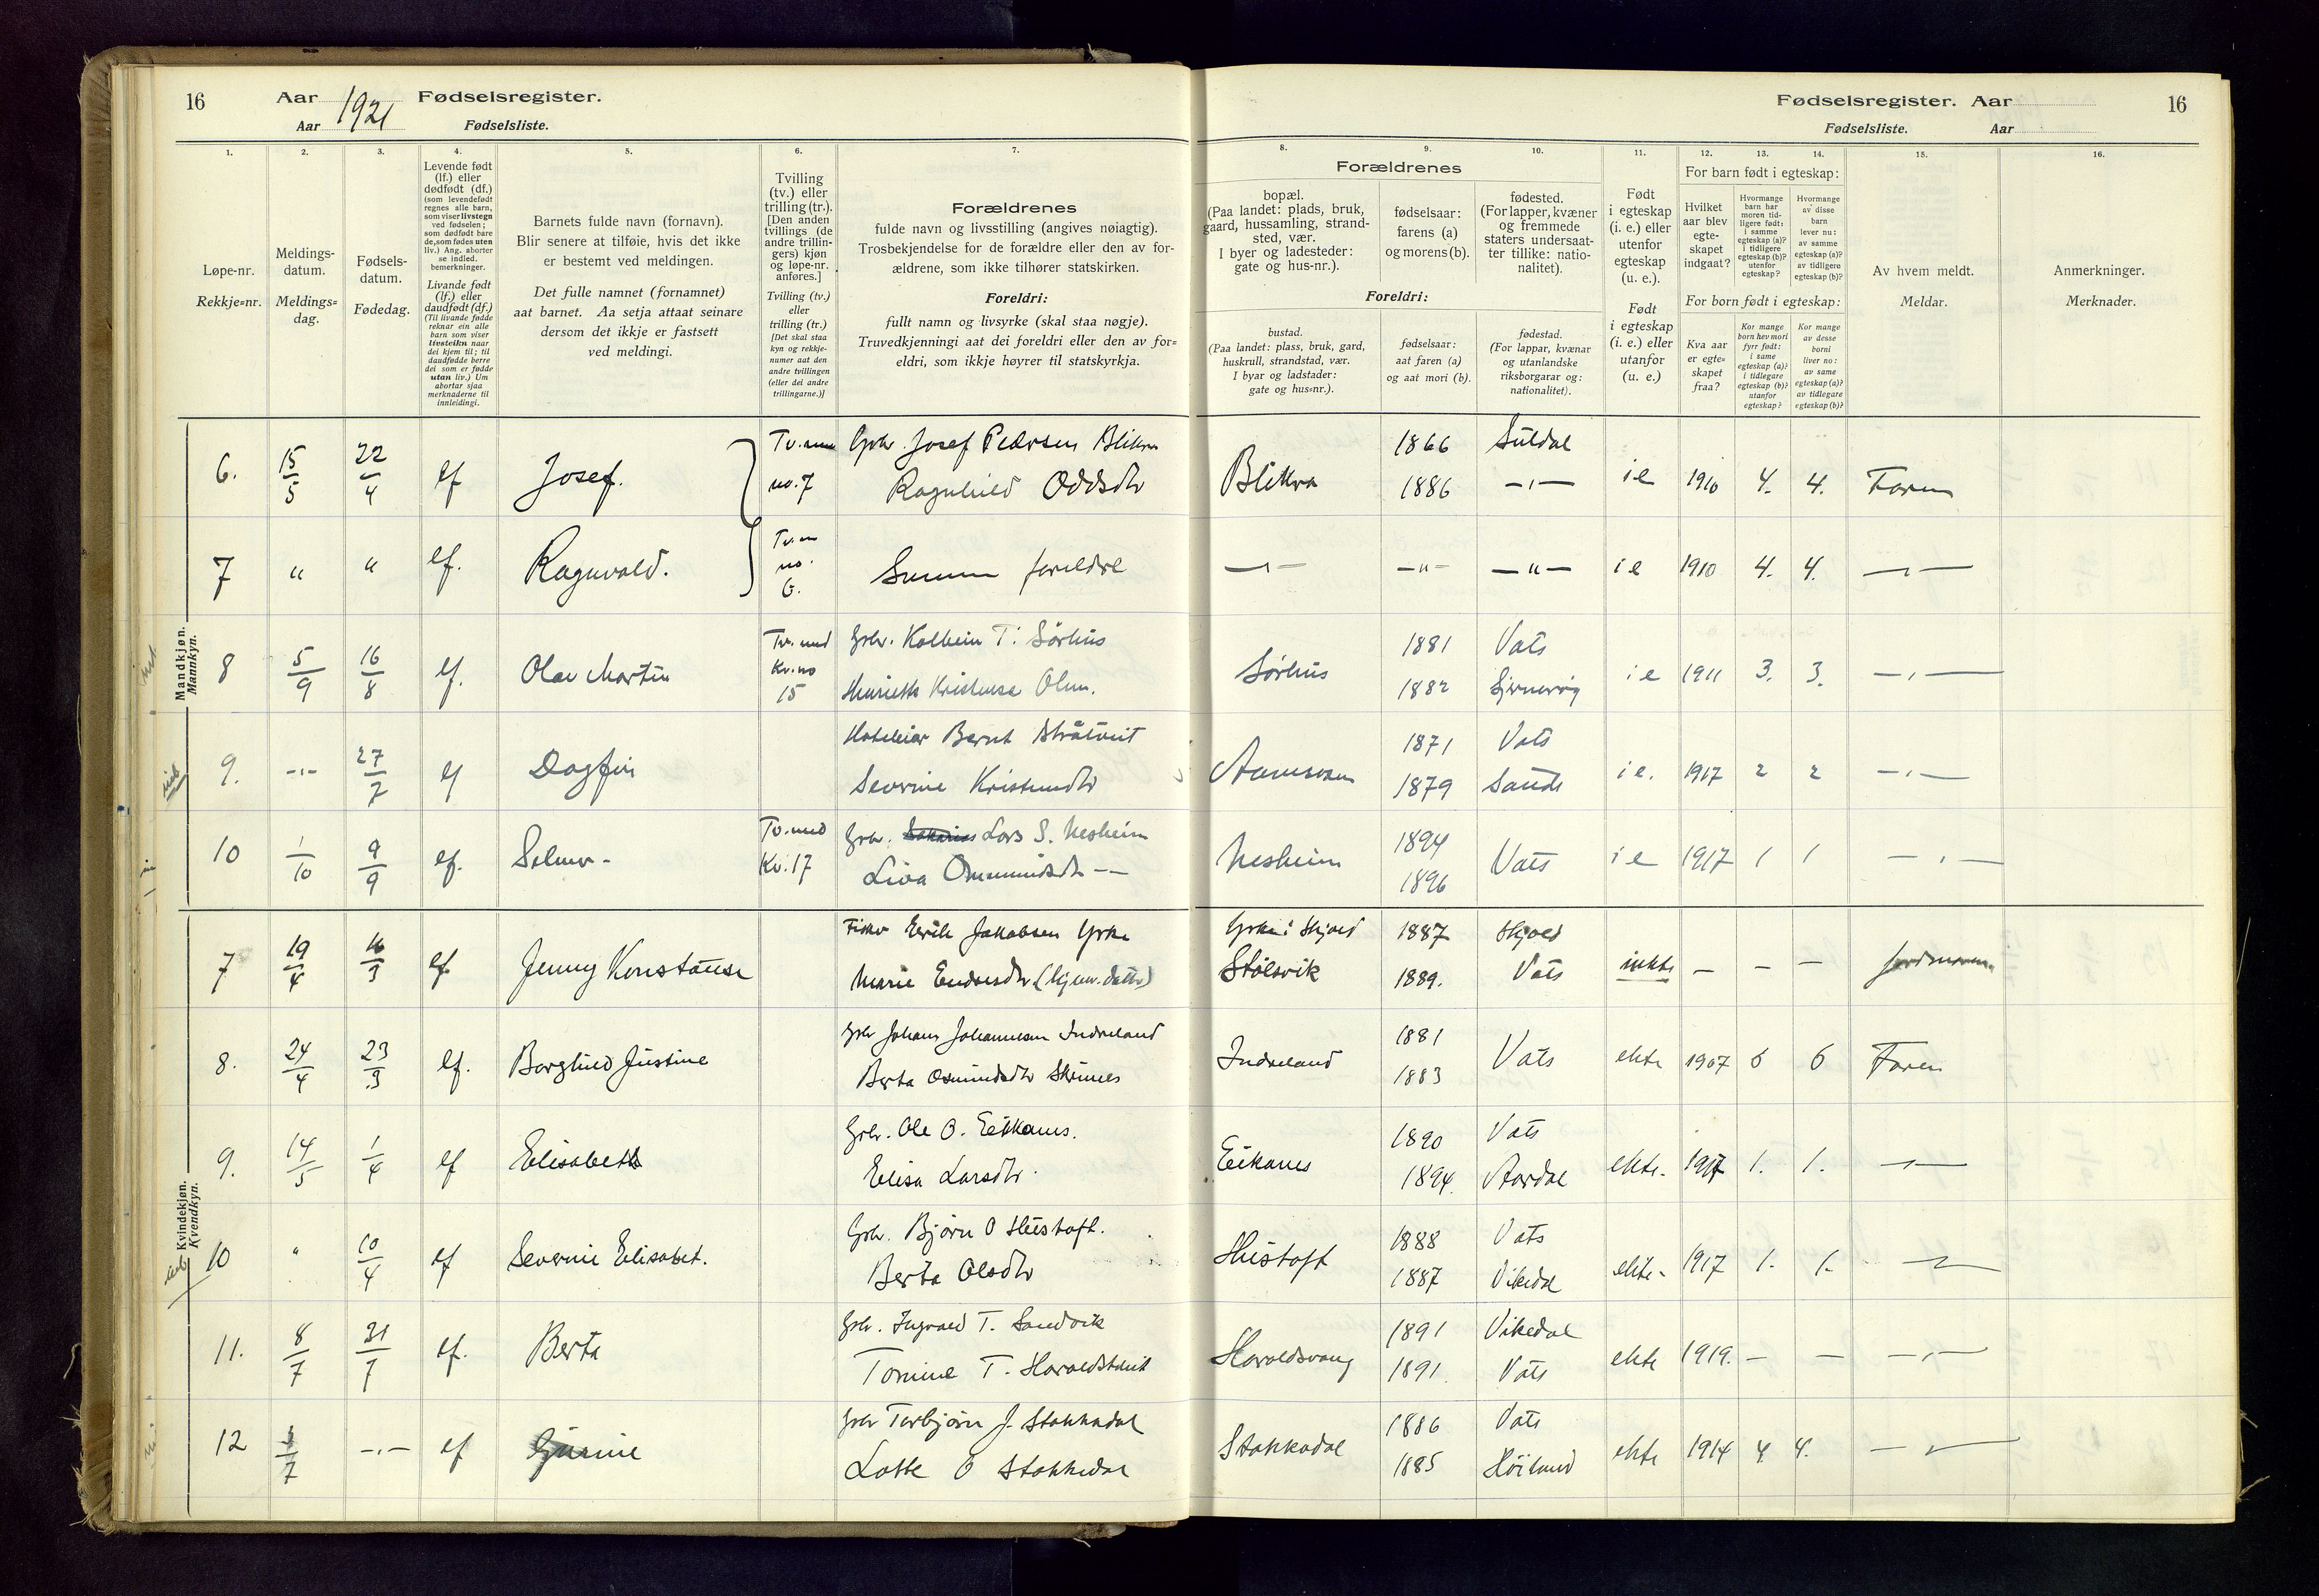 16 Aar 1921 Fødselsregister.
Aar Fødselsliste.
Fødselsregister. Aar 16
Fødselsliste. Aar
1. 2. 3. 4. 5. 6. 7. 8. 9. 10. 11. 12. 13. 14. 15. 16.
Løpe-nr.
Rekkje-nr.
Meldings-
datum.
Meldings-
dag.
Fødsels-
datum.
Fødedag.
Levende født
(lf.) eller
dødfødt (df.)
(som levendefødt
regnes alle barn,
som viser livstegn
ved fødselen;
som dødfødt bare
de, som fødes uten
liv.) Ang. aborter
se indled.
bemerkninger.
Livande født
(lf.) eller
daudfødt (df.)
(Til livande fødde
reknar ein alle
barn som viser
livsteikn naar
dei kjem til; til
daudfødde berre
dei som er fødde
utan liv.) Um
abortar sjaa
merknaderne til
innleidingi.
Barnets fulde navn (fornavn).
Blir senere at tilføie, hvis det ikke
er bestemt ved meldingen.
Det fulle namnet (fornamnet)
aat barnet. Aa setja attaat seinare
dersom det ikkje er fastsett
ved meldingi.
Tvilling
(tv.) eller
trilling (tr.).
[Den anden
tvillings (de
andre trillin-
gers) kjøn
og løpe-nr.
anføres.]
Tvilling (tv.)
eller
trilling (tr.)
[Det skal staa
kyn og rekkje-
numer aat den
andre tvillingen
(eller dei andre
trillingarne.)]
Forældrenes
fulde navn og livsstilling (angives nøiagtig).
Trosbekjendelse for de forældre eller den av for-
ældrene, som ikke tilhører statskirken.
Foreldri:
fullt namn og livsyrke (skal staa nøgje).
Truvedkjenningi aat dei foreldri eller den av for-
eldri, som ikkje høyrer til statskyrkja.
Forældrenes
bopæl.
(Paa landet: plads, bruk,
gaard, hussamling, strand-
sted, vær.
I byer og ladesteder:
gate og hus-nr.).
fødselsaar:
farens (a)
og morens (b).
fødested.
(For lapper, kvæner
og fremmede
staters undersaat-
ter tillike: natio-
nalitet).
Foreldri:
bustad.
(Paa landet: plass, bruk, gard,
huskrull, strandstad, vær.
I byar og ladstader:
gate og hus-nr.).
fødselsaar:
aat faren (a)
og aat mori (b).
fødestad.
(For lappar, kvænar
og utanlandske
riksborgarar og:
nationalitet).
Født
i egteskap
(i. e.) eller
utenfor
egteskap
(u. e.).
Født
i egteskap
(i. e.) eller
utanfor
(u. e.)
For barn født i egteskap:
Hvilket
aar blev
egte-
skapet
indgaat?
Hvormange
barn har
moren tid-
ligere født:
i samme
egteskap (a)?
i tidligere
egteskap (b)?
utenfor
egteskap?
Hvormange
av disse
barn
lever nu:
av samme
egteskap (a)?
av tidligere
egteskap (b)?
For born født i egteskap:
Kva aar
er egte-
skapet
fraa?
Kor mange
born hev mori
fyrr født:
i same
egteskap (a)?
i tidlegare
egteskap (b)?
utanfor
egteskap?
Kor mange
av desse
borni
liver no:
av same
egteskap (a)?
av tidlegare
egteskap (b)?
Av hvem meldt.
Meldar.
Anmerkninger.
Merknader.
Mandkjøn.
Mannkyn.
6. 15/5 22/4 lf Josef. no. 7 Gbr. Josef Pedersen Blikra
Ragnhild Oddsdtr Blikra 1866 1886 Suldal -"- i e 1910 4. 4. Faren
7 " " lf. Ragnvald. Tv. m no. 6. Samme foreldre -"- -"- -"- i e 1910 4. 4. -"-
8 5/9 16/8 lf. Olav Martin Tv. med Kv. no 15 Gbr. Kolbein T. Sørhus
Olsen. Sørhus 1881 1882 Vats i e 1911 3. 3. -"-
9. -"- 27/7 lf Dagfin Bernt
Severine 1871 1879 Vats Sand i e. 1917 2 2 -"-
10 1/10 9/9 lf. Selmer - Tv. med Kv. 17 Gbr. Lars S. Nesheim
Liva Ommundsdtr -"- Nesheim 1894 1896 Vats i e 1917 1 1 -"-
Kvindekjøn.
Kvendkyn.
7 19/4 16/3 lf. Jenny Konstanse Eerik Jakobsen Yrke
Marie Endresdtr Yrke i Skjold
Stølsvik 1887 1889. Skjold Vats - - -
8. 24/4 23/3 lf. Borghild Justine Gbr Johans Johannesen Indreland
Berta Osmundsdtr Indreland 1881 1883 Vats ekte 1907 6 6 Faren
9. 14/5 1/4 lf Elisabeth Gbr. Ole O. Eikanes.
Elisa Larsdtr. Eikanes 1890 1894. Vats Aardal ekte. 1917 1. 1. -"-
10 " 10/4 lf Severine Elisabet. Gbr. Bjørn O Hustoft.
Berta Olsdtr Hustoft 1888 1887 Vats Vikedal ekte. 1917 1. 1. -"-
11. 8/7 31/7 lf. Berta Gbr. Ingvald T. Sandvik
Tomine T. Haraldsvang 1891 1891. Vikedal Vats ekte 1919. - - -"-
12 3/7 -"- lf Gurine Gbr Torbjørn J. Stakkadal
Lotte O Stakkedal Stakkadal 1886 1885 Vats Høiland ekte 1914 4 4. -"-